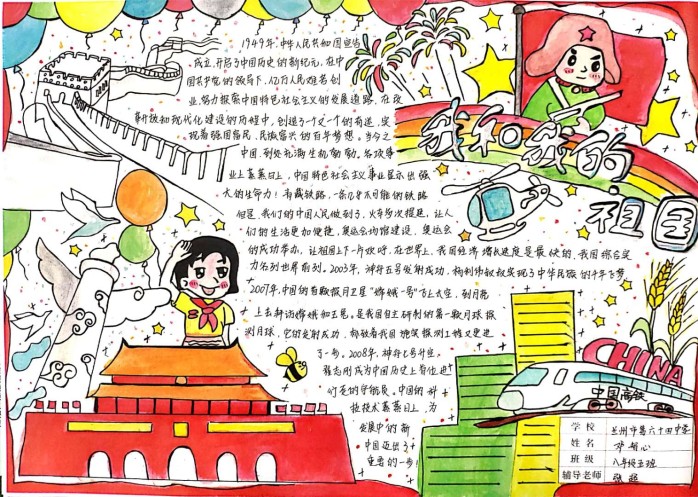 我和我的
祖国
1949年,中华人民共和国宣告
成立,开启了中国历史的新纪元,在中
国共产党的领导下,亿万人民艰苦创
业,努力探索中国特色社会主义的发展道路,在改
革开放和现代化建设的历程中,创造了一个又一个的奇迹,实
现着强国富民,民族复兴的百年梦想。当今之
中国,到处充满生机勃勃。各项事
业上蒸蒸日上,中国特色社会主义事业显示出强
大的生命力!青藏铁路,一条几乎不可能的铁路
但是,我们的中国人民做到了,火车多次提速,让人
们的生活更加便捷,奥运会场馆建设,奥运会
的成功举办,让祖国上下一片欢呼,在世界上,我国经济增长速度是最快的,我国综合实
力名列世界前列。2003年,神舟五号发射成功,杨利伟叔叔实现了中华民族的千年飞梦,
2007年,中国的首颗探月卫星"嫦娥一号"飞上太空,到月亮
上去拜访嫦娥和玉兔。是我国自主研制的第一颗月球探
测月球,它的发射成功,标致着我国的深空探测工程又更进
了一步。2008年,神舟七号升空,
翟志刚成为中国历史上首位进
行走的宇航员。中国的科
技技术蒸蒸日上,为
发展中的新
中国迈出了
重要的一步!
CHINA
中国高铁
学校 兰州市第六十四中学
姓名
班级 八年级五班
辅导老师 张